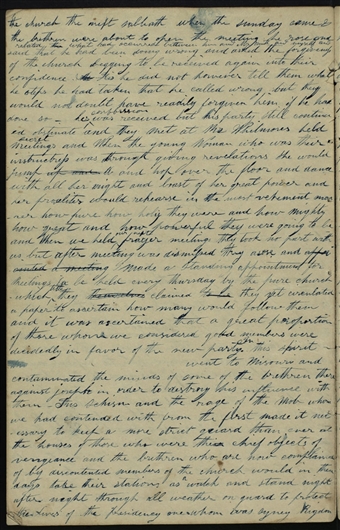 the church the next sabbath when the sunday came &
the bretheren were about to open the meeting he rose and
related what had occurred between him and
said that he had been doing wrong and asked the forgiveness
of the church begging to be received again into their
confidence he did not however tell them what
the steps he had taken that he called wrong but they
would no doubt have readily forgiven him if he had
done so — his confession received but his party still continu
ed obstinate and they met at Mr Whitmores held
secret meetings and then the young woman who was their
instructress was through giving revelations she would
jump up and hop over the floor and dance
with all her might and boast of her great power and
her proselites would rehearse in the most vehement man
ner how pure how holy they were and how mighty
how great and how powerful they were going to be
and then we held prayer meeting they took no part with
us but after meeting was dismissed they arose and
made a standing appointment for
meetings to be held every thursday by the pure church
which they claimed they yet circulated
a paper to ascertain how many would follow them
and it was ascertained that a great proportion
of those whom we considered good members were
decidedly in favor of the new party this spirit
went to Missouri and
contaminated the minds of some of the brethren there
against Joseph in order to destroy his influence with
them — this schism and the rage of the mob whom
we had contended with from the first made it nec
essary to keep a more strict guard than ever at
the houses of those who were the chief objects of
vengeance and the brethren who are now complained
of by discontented members of the church would in those
days take their stations as watch and stand night
after night through all weather on guard to protect
the lives of the presidency over whom was sydney Rigdon